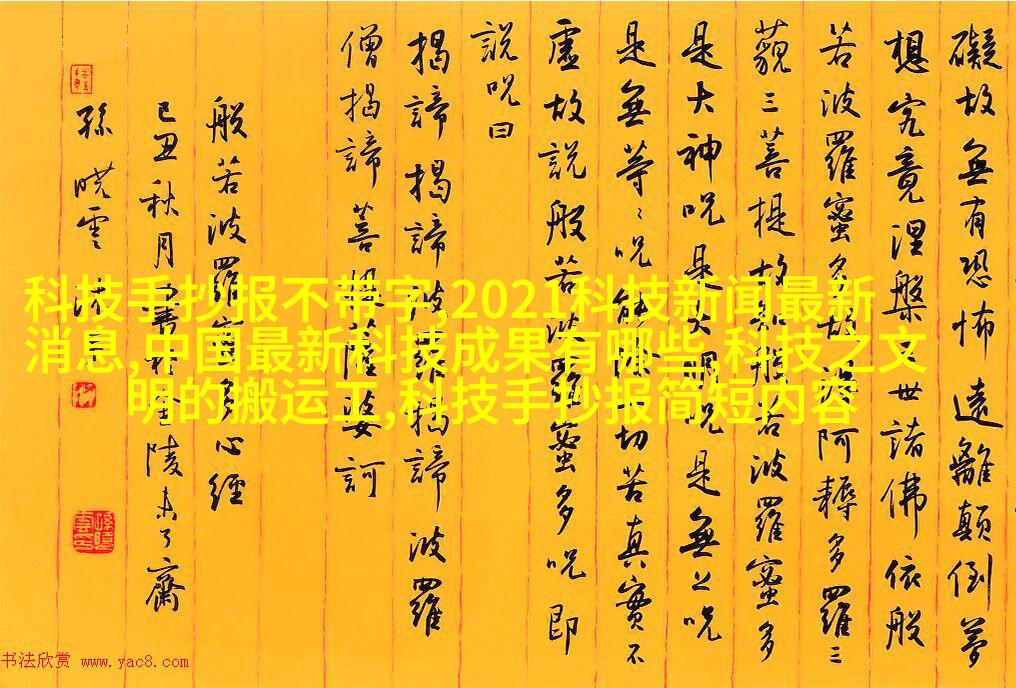 礙故無有恐怖遠離顛倒夢
想究竟涅槃三世諸佛依般
若波羅蜜多故得阿耨多羅三
藐三菩提故知般若波羅蜜多
是大神呪是大明呪是無上呪
是無等〻呪能除一切苦真實不
虛故說般若波羅蜜多呪即
說呪曰
揭諦揭諦波羅揭諦波羅
僧揭諦菩提薩婆訶
般若波羅蜜多心經
己丑秋月書於金陵未了齋
孫曉雲
科技手抄报不带字,2021科技新闻最新
消息,中国最新科技成果有哪些,科技之文
明的搬运工,科技手抄报简短内容
书法欣赏 www.yac8.com